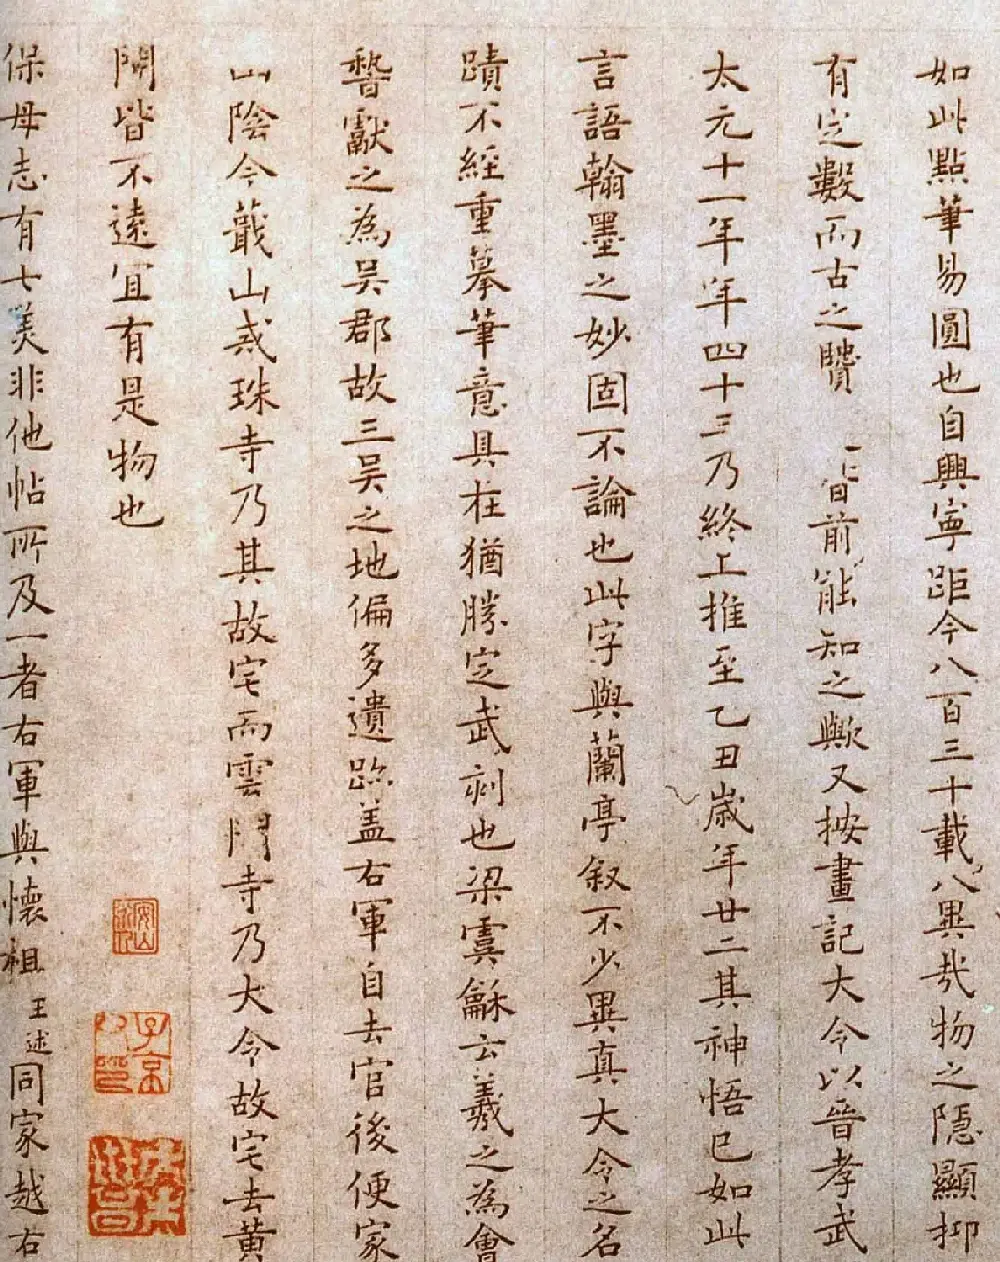 如此點筆易圓也自興寧距今八百三十載八異㢤物之隠顯抑
有定數而古之賢 皆前能知之歟又按畫記大令以晉孝武
太元十一年年四十三乃終工推至乙丑歲年廿二其神悟已如此
言語翰墨之妙固不論也此字與蘭亭叙不少異真大令之名
蹟不經重摹筆意具在猶勝定武刻也梁虞龢云羲之為會
稽獻之為吳郡故三吳之地偏多遺跡盖右軍自去官後便家
山陰今蕺山戒珠寺乃其故宅而雲門寺乃大令故宅去黃
閍皆不遠宜有是物也
保母志有七美非他帖所及一者右軍與懷祖王述同家越右
安山
子京